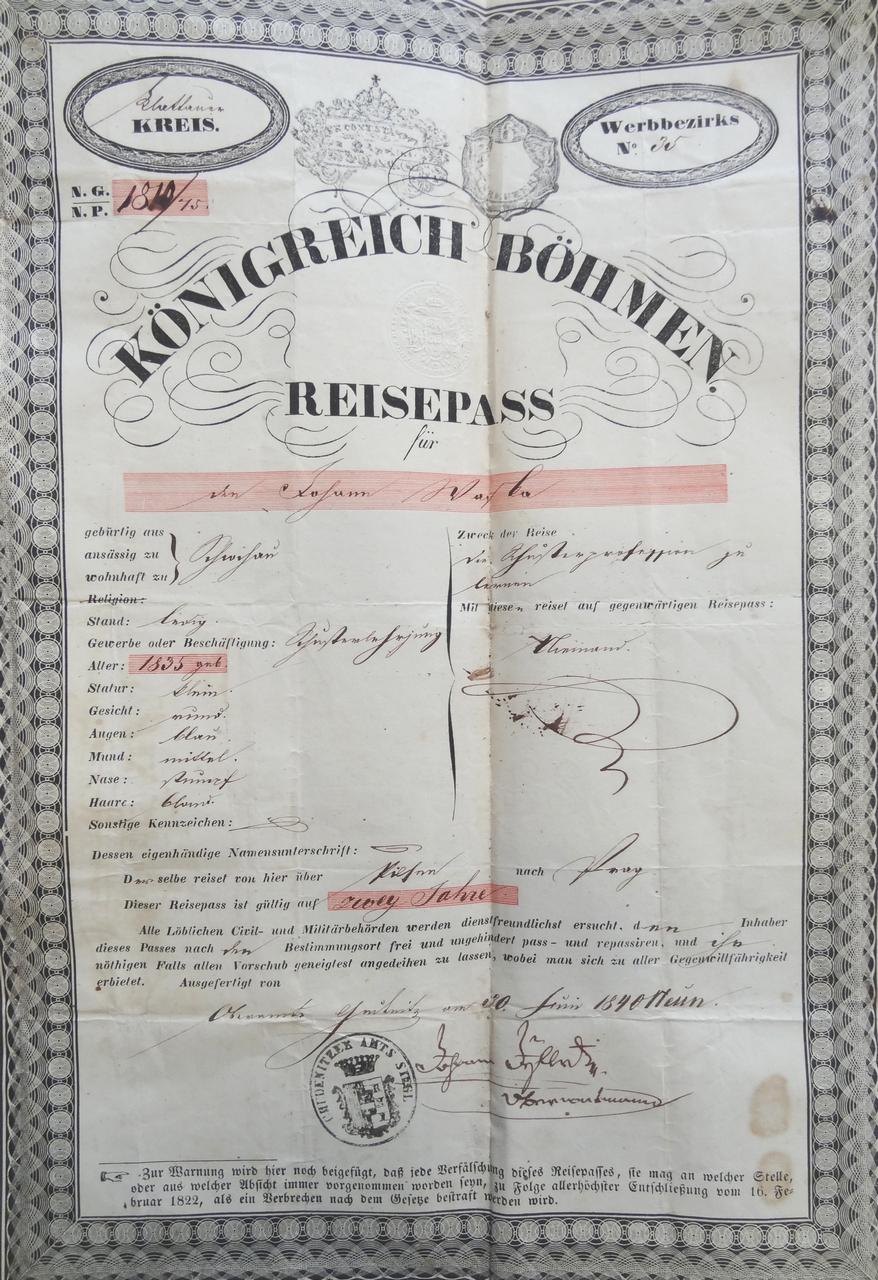 Klattauer
KREIS.
Werbbezirks
Nº 35
N. G.
N. P.
KÖNIGREICH BÖHMEN.
REISEPASS
für
den Johann
gebürtig aus
ansässig zu
wohnhaft zu
Schwihau
Religion:
Stand: ledig.
Gewerbe oder Beschäftigung: Schusterlehrjung
Alter: 1835 geb.
Statur: klein.
Gesicht: rund.
Augen: blau.
Mund: mittel.
Nase: stumpf
Haare: blond.
Sonstige Kennzeichen:
Zweck der Reise
die Schusterprofession zu
lernen
Mit diesen reiset auf gegenwärtigen Reisepass:
Niemand.
Dessen eigenhändige Namensunterschrift:
Derselbe reiset von hier über Pilsen nach Prag
Dieser Reisepass ist gültig auf zwey Jahre
Alle Löblichen Civil- und Militärbehörden werden dienstfreundlichst ersucht, den Inhaber
dieses Passes nach den Bestimmungsort frei und ungehindert pass- und repassiren, und ihn
nöthigen Falls allen Vorschub geneigtest angedeihen zu lassen, wobei man sich zu aller Gegenwillfährigkeit
erbietet. Ausgefertigt von
Oberamte am 30. Juni 1849
CHUDENITZER AMTS SIEGL
Johann
Oberamtmann
Zur Warnung wird hier noch beigefügt, daß jede Verfälschung dieses Reisepasses, sie mag an welcher Stelle,
oder aus welcher Absicht immer vorgenommen worden seyn, zu Folge allerhöchster Entschließung vom 16. Fe-
bruar 1822, als ein Verbrechen nach dem Gesetze bestraft werden wird.